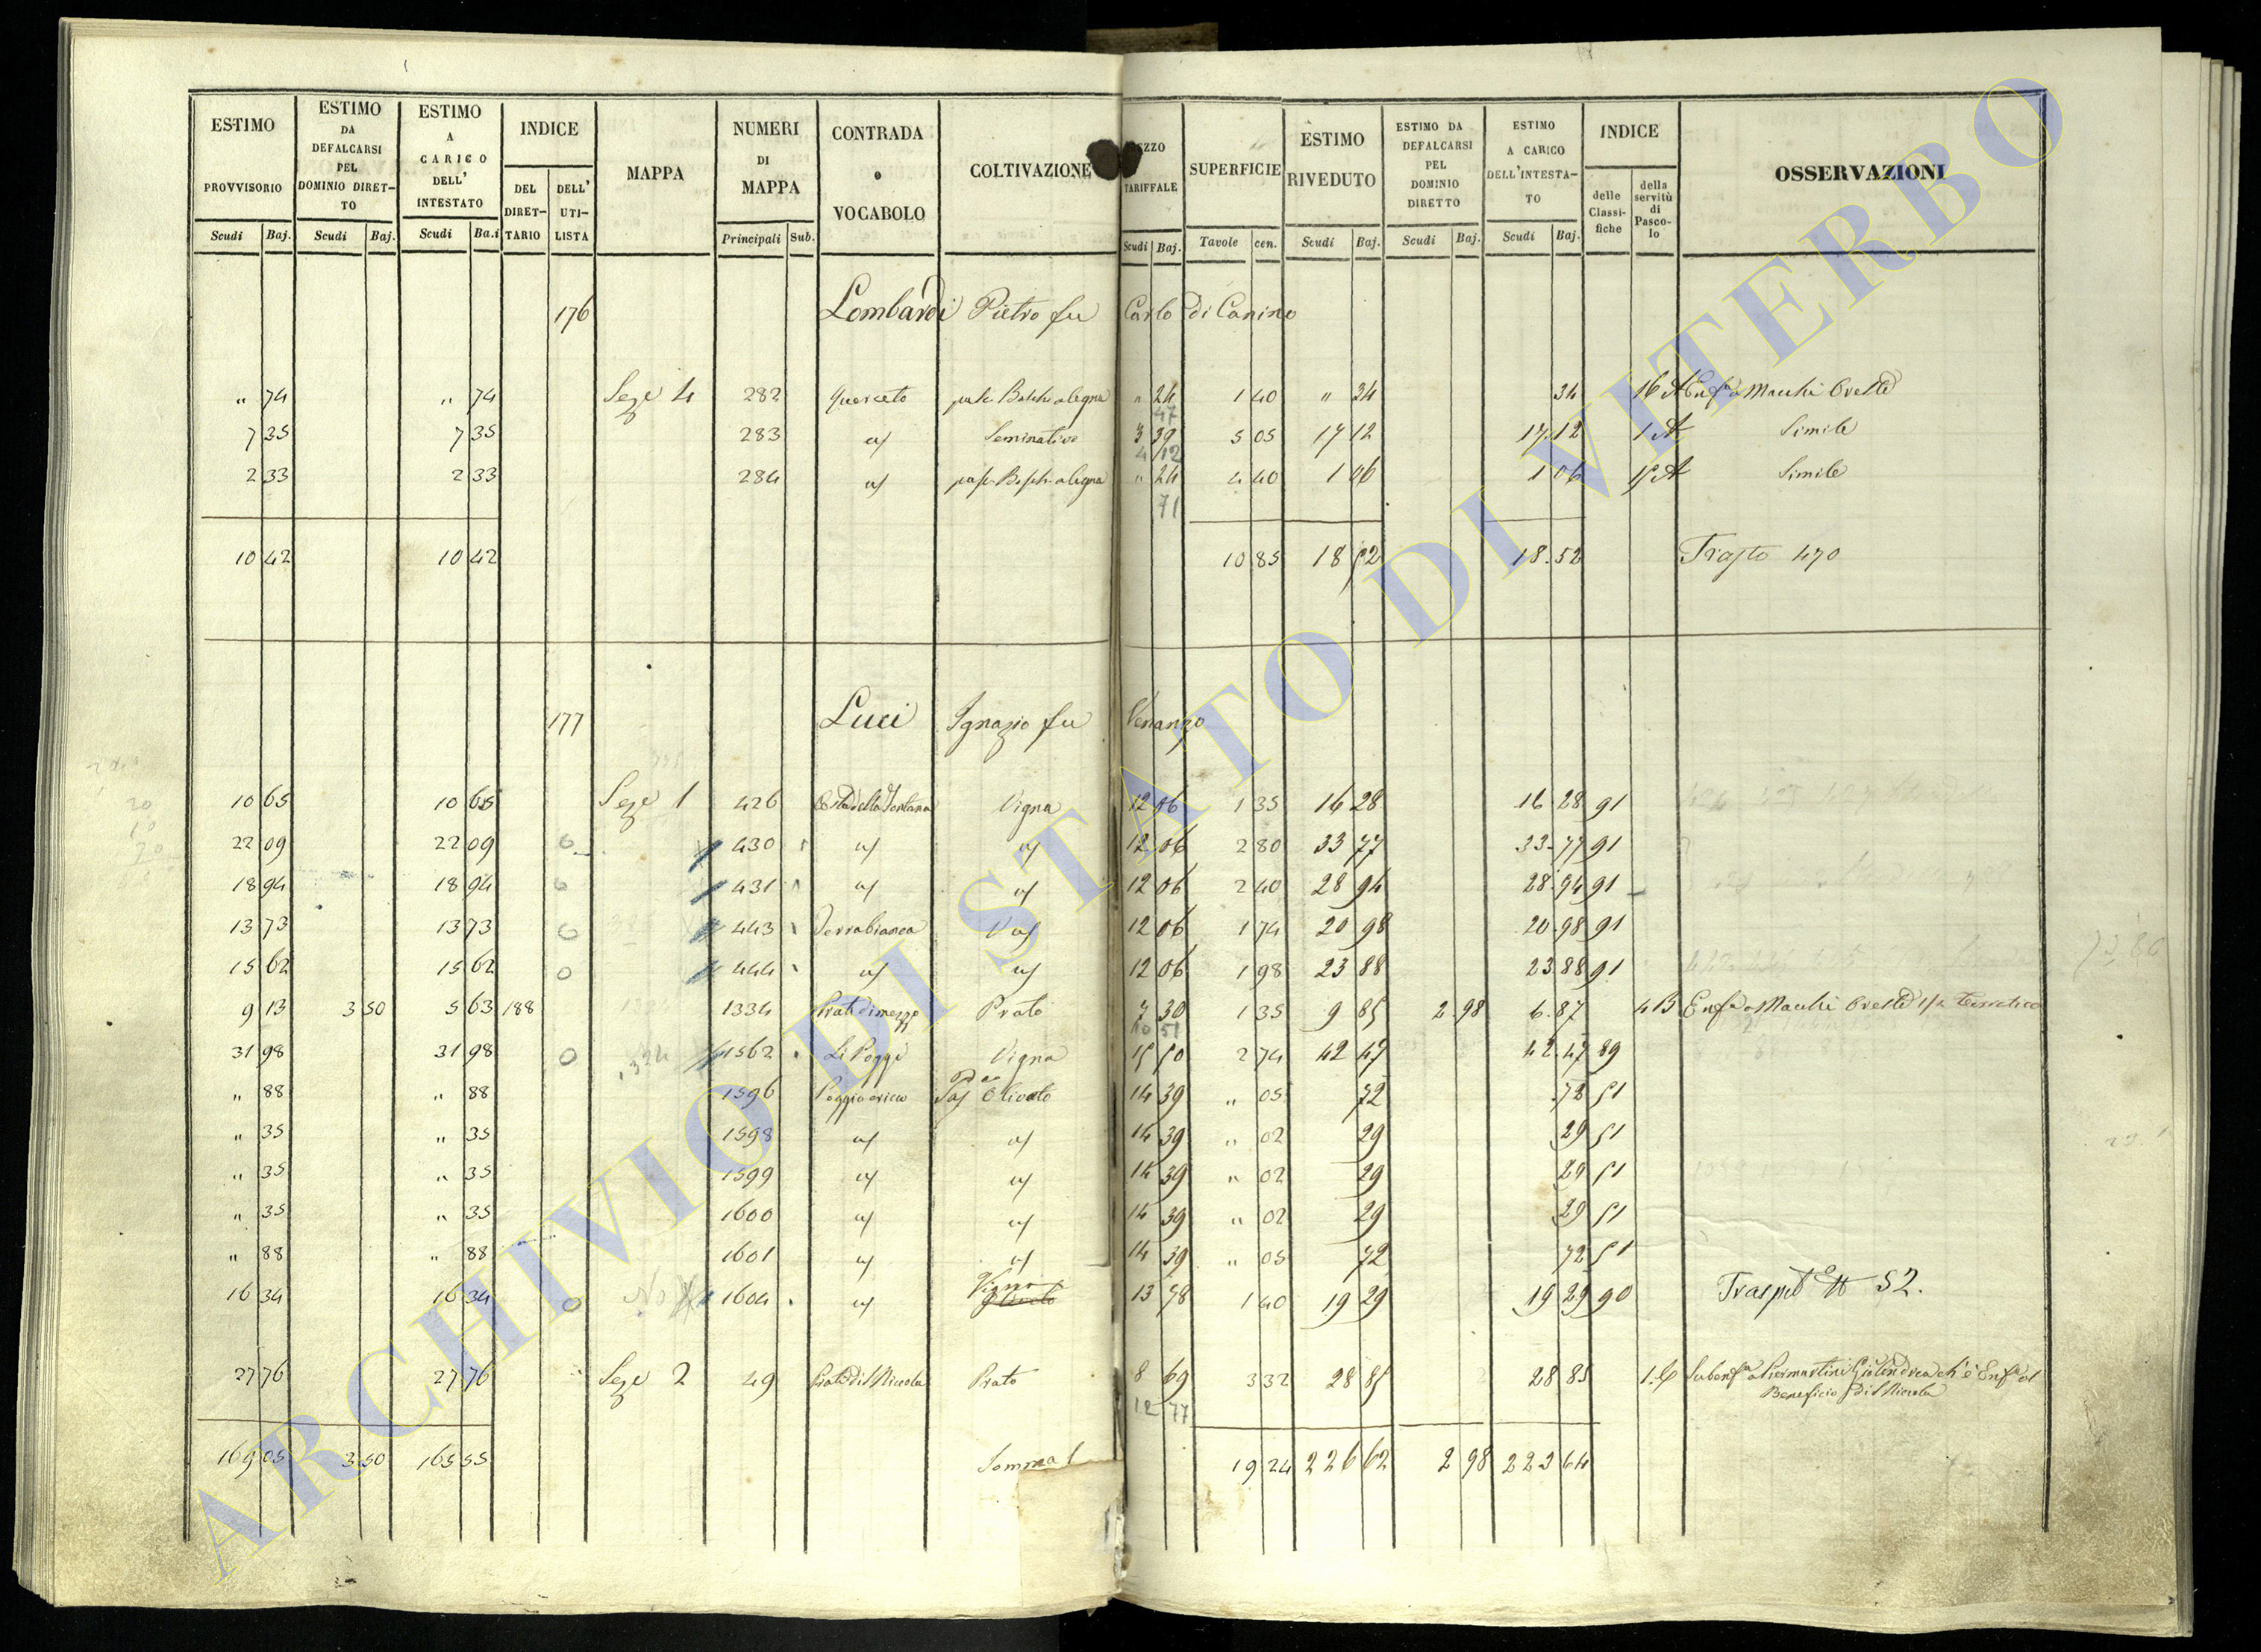 ESTIMO PROVVISORIO Scudi Baj. ESTIMO DA DEFALCARSI PEL DOMINIO DIRET-TO Scudi Baj. ESTIMO A CARICO DELL' INTESTATO Scudi Ba.i INDICE DEL DIRET-TARIO DELL' UTI-LISTA MAPPA NUMERI DI MAPPA Principali Sub. CONTRADA o VOCABOLO COLTIVAZIONE
TARIFFALE Scudi Baj. SUPERFICIE Tavole cen. ESTIMO RIVEDUTO Scudi Baj. ESTIMO DA DEFALCARSI PEL DOMINIO DIRETTO Scudi Baj. ESTIMO A CARICO DELL'INTESTA-TO Scudi Baj. INDICE delle Classi-fiche della servitù di Pasco-lo OSSERVAZIONI
176 Lombardi Pietro fu Carlo di Canino
" 74 " 74 Seze 4 282 Querceto " 24 1 40 " 34 34 16 A Enfa Macchi Oreste
47
7 35 7 35 283 Seminativo 3 39 5 05 17 12 17.12 1 A Simile
4 12
2 33 2 33 284 " 24 4 40 1 06 1 06 Simile
71
10 42 10 42 10 85 18 52 18.52 Trasto 470
177 Luci Ignazio fu Venanzo
10 65 10 65 Seze 1 426 Costa della Fontana Vigna 12 06 1 35 16 28 16 28 91
22 09 22 09 430 12 06 2 80 33 77 33.77 91
18 94 18 94 431 12 06 2 40 28 94 28.94 91
13 73 13 73 443 Terrabianca 12 06 1 74 20 98 20.98 91
15 62 15 62 444 12 06 1 98 23 88 23 88 91
9 13 3 50 5 63 188 1334 Prati di mezzo Prato 7 30 1 35 9 85 2.98 6.87 4 B Enfa a Macchi Oreste
10 51
31 98 31 98 1562 Li Poggi Vigna 15 50 2 74 42 47 42.47 89
" 88 " 88 1596 Olivato 14 39 " 05 72 72 51
" 35 " 35 1598 14 39 " 02 29 29 51
" 35 " 35 1599 14 39 " 02 29 29 51
" 35 " 35 1600 14 39 " 02 29 29 51
" 88 " 88 1601 14 39 " 05 72 72 51
16 34 16 34 No 1604 Vigna 13 78 1 40 19 29 19 29 90 52.
27 76 27 76 Seze 2 49 Prato di S Niccola Prato 8 69 3 32 28 85 28 85
Beneficio di S Niccola
12 77
169 05 3 50 165 55 Somma 19 24 226 62 2 98 223 64
ARCHIVIO DI STATO DI VITERBO